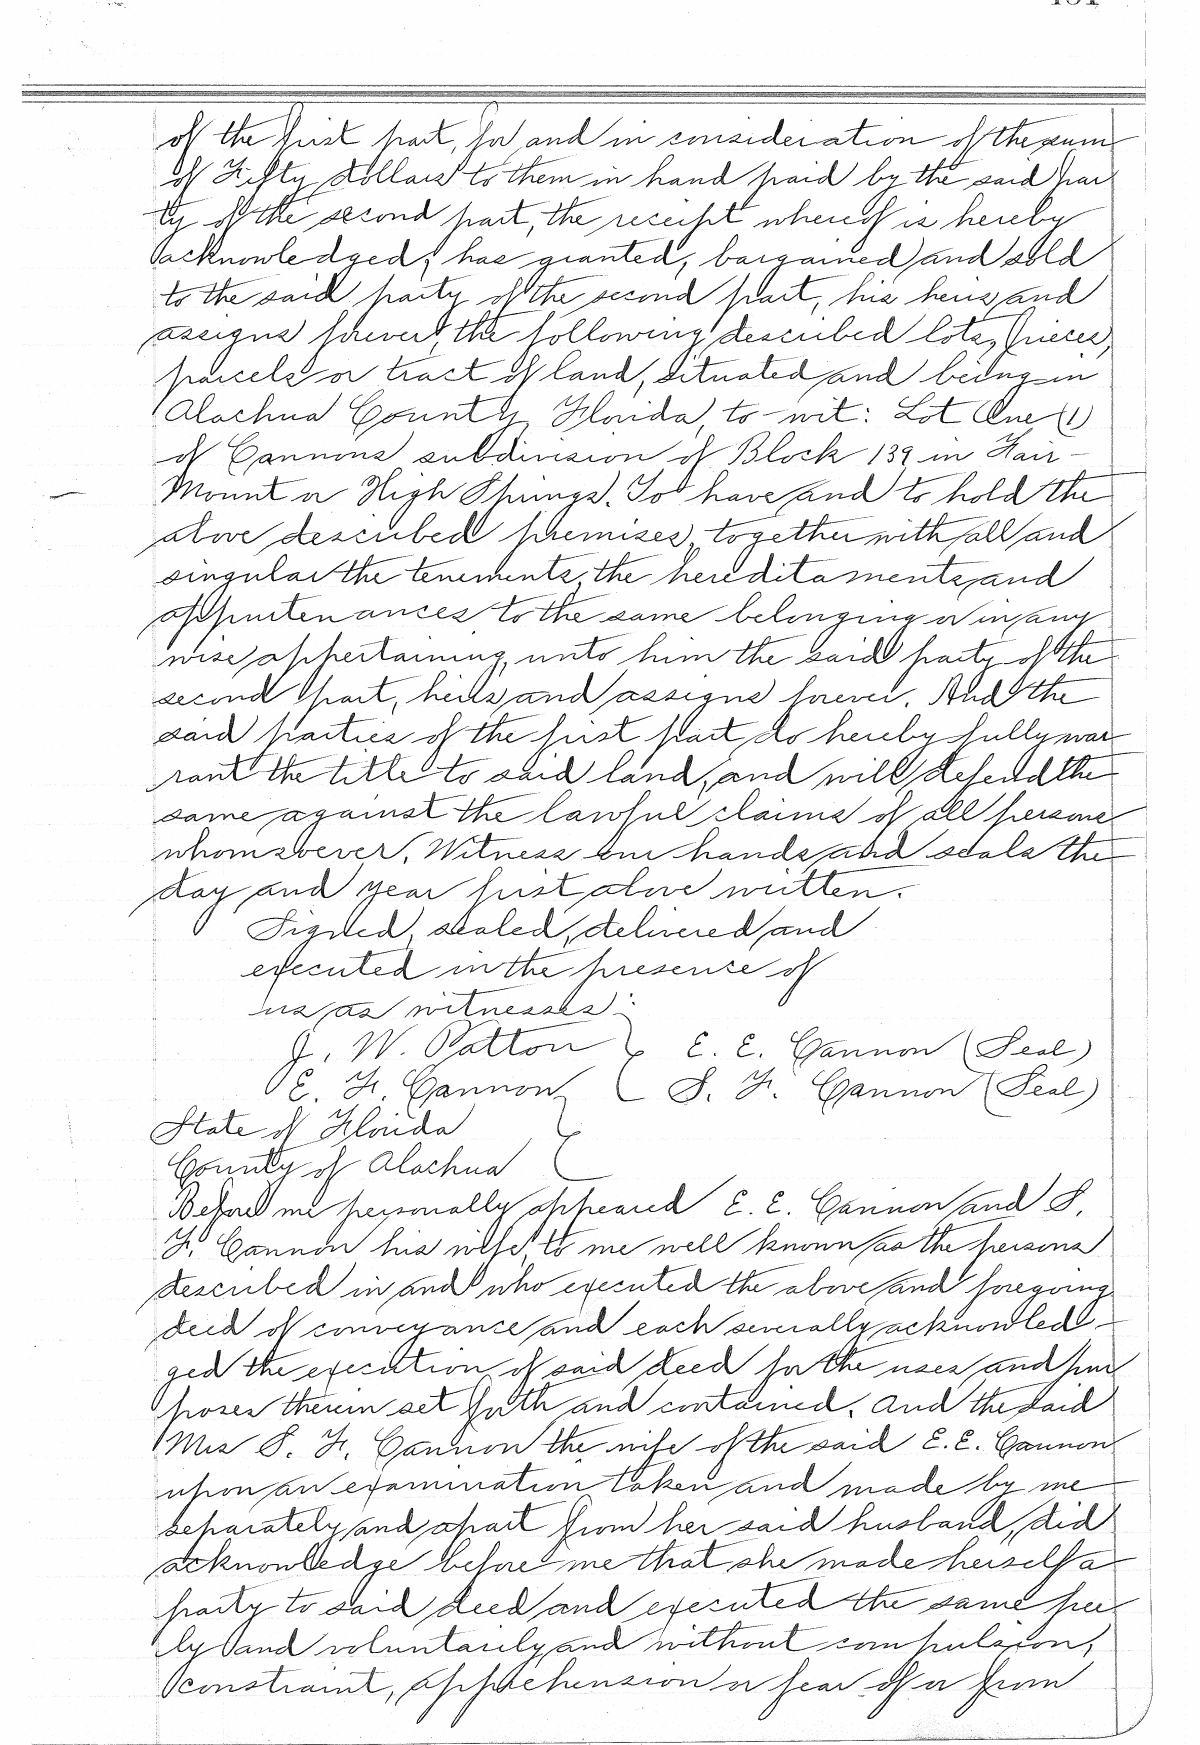 of the first part, for and in consideration of the sum
of Fifty dollars to them in hand paid by the said par
ty of the second part, the receipt whereof is hereby
acknowledged, has granted, bargained and sold
to the said party of the second part, his heirs and
assigns forever, the following described lots, pieces,
parcels or tract of land, situated and being in
Alachua County, Florida, to-wit: Lot One (1)
of Cannons subdivision of Block 139 in Fair-
Mount or High Springs. To have and to hold the
above described premises, together with all and
singular the tenements, the hereditaments and
appurtenances to the same belonging or in any
wise appertaining, unto him the said party of the
second part, heirs and assigns forever. And the
said parties of the first part do hereby fully war
rant the title to said land, and will defend the
same against the lawful claims of all persons
whomsoever. Witness our hands and seals the
day and year first above written.
Signed, sealed, delivered and
executed in the presence of
us as witnesses:
J. W. Patton } E. E. Cannon (Seal)
E. F. Cannon } S. F. Cannon (Seal)
State of Florida
County of Alachua }
Before me personally appeared E. E. Cannon and S.
F. Cannon his wife, to me well known as the persons
described in and who executed the above and foregoing
deed of conveyance and each severally acknowled-
ged the execution of said deed for the uses and pur
poses therein set forth and contained. And the said
Mrs S. F. Cannon the wife of the said E. E. Cannon
upon an examination taken and made by me
separately and apart from her said husband, did
acknowledge before me that she made herself a
party to said deed and executed the same free
ly and voluntarily and without compulsion,
constraint, apprehension or fear of or from